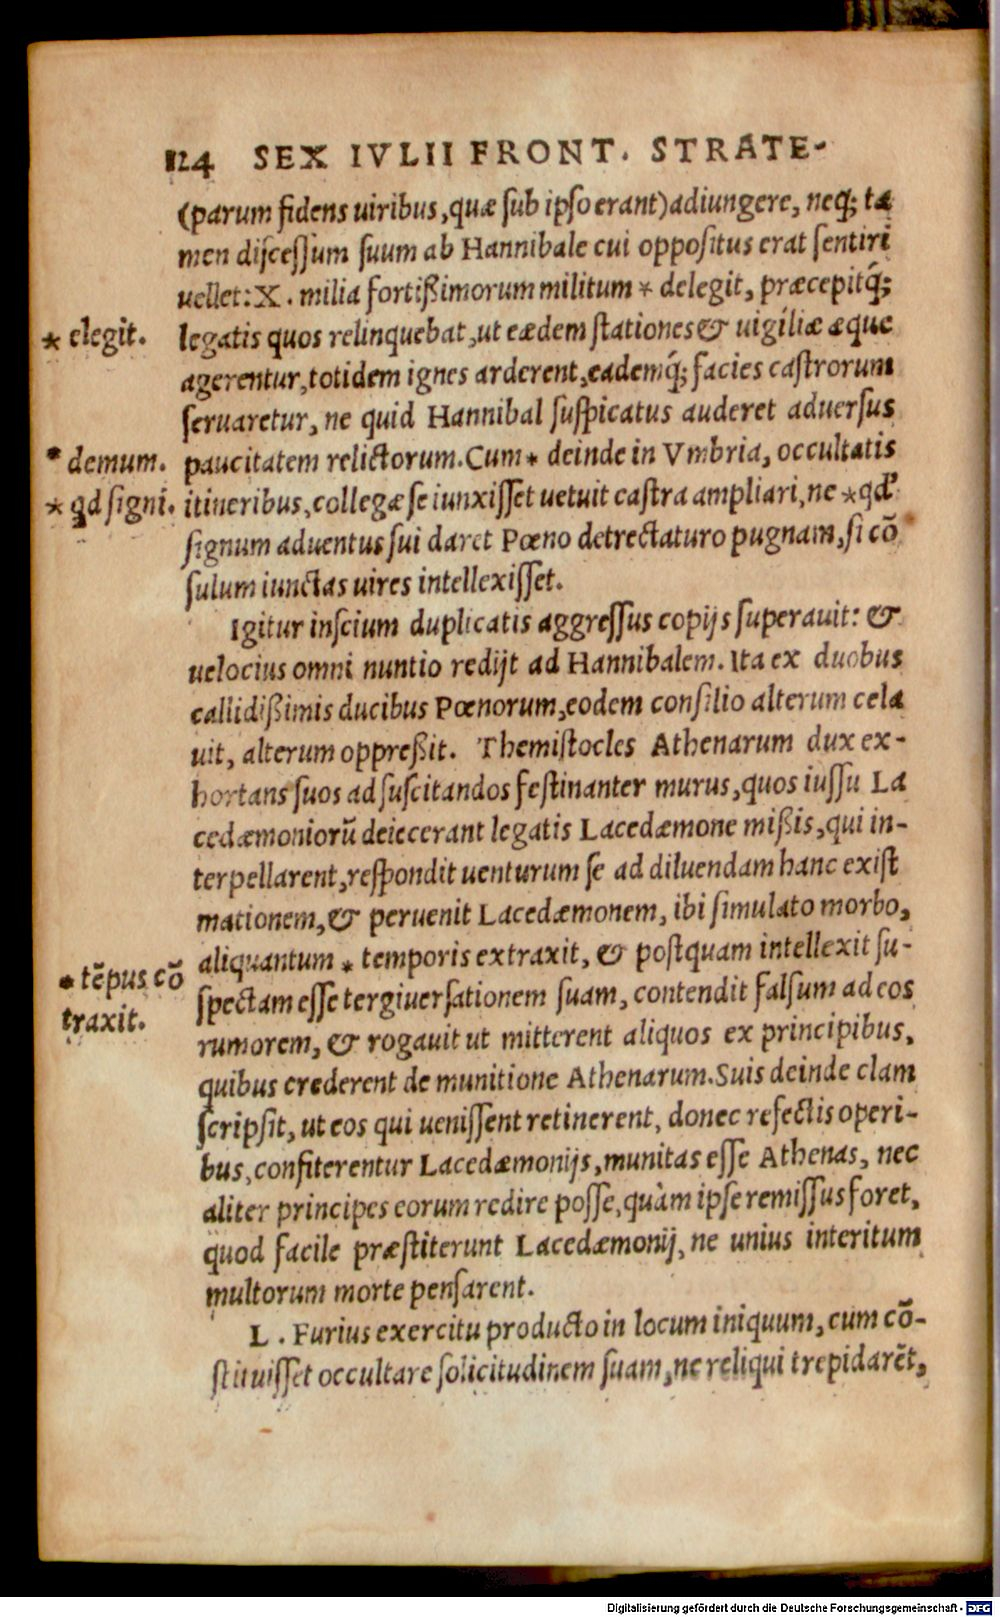 124 SEX IVLII FRONT. STRATE-
(parum fidens uiribus, quæ sub ipso erant) adiungere, neq; ta
men discessum suum ab Hannibale cui oppositus erat sentiri
uellet: X. milia fortißimorum militum * delegit, præcepitq́;
* elegit.
legatis quos relinquebat, ut eædem stationes & uigiliæ æque
agerentur, totidem ignes arderent, eademq́; facies castrorum
seruaretur, ne quid Hannibal suspicatus auderet aduersus
* demum.
paucitatem relictorum. Cum * deinde in Vmbria, occultatis
* qd signi.
itineribus, collegæ se iunxisset uetuit castra ampliari, ne * qd'
signum aduentus sui daret Pœno detrectaturo pugnam, si cō
sulum iunctas uires intellexisset.
Igitur inscium duplicatis aggressus copijs superauit: &
uelocius omni nuntio redijt ad Hannibalem. Ita ex duobus
callidißimis ducibus Pœnorum, eodem consilio alterum cela
uit, alterum oppreßit. Themistocles Athenarum dux ex-
hortans suos ad suscitandos festinanter murus, quos iussu La
cedæmoniorū deiecerant legatis Lacedæmone mißis, qui in-
terpellarent, respondit uenturum se ad diluendam hanc exist
mationem, & peruenit Lacedæmonem, ibi simulato morbo,
aliquantum * temporis extraxit, & postquam intellexit su-
* tēpus cō
traxit.
spectam esse tergiuersationem suam, contendit falsum ad eos
rumorem, & rogauit ut mitterent aliquos ex principibus,
quibus crederent de munitione Athenarum. Suis deinde clam
scripsit, ut eos qui uenissent retinerent, donec refectis operi-
bus, confiterentur Lacedæmonijs, munitas esse Athenas, nec
aliter principes eorum redire posse, quàm ipse remissus foret,
quod facile præstiterunt Lacedæmonij, ne unius interitum
multorum morte pensarent.
L. Furius exercitu producto in locum iniquum, cum cō-
stituisset occultare solicitudinem suam, ne reliqui trepidarēt,
Digitalisierung gefördert durch die Deutsche Forschungsgemeinschaft - DFG